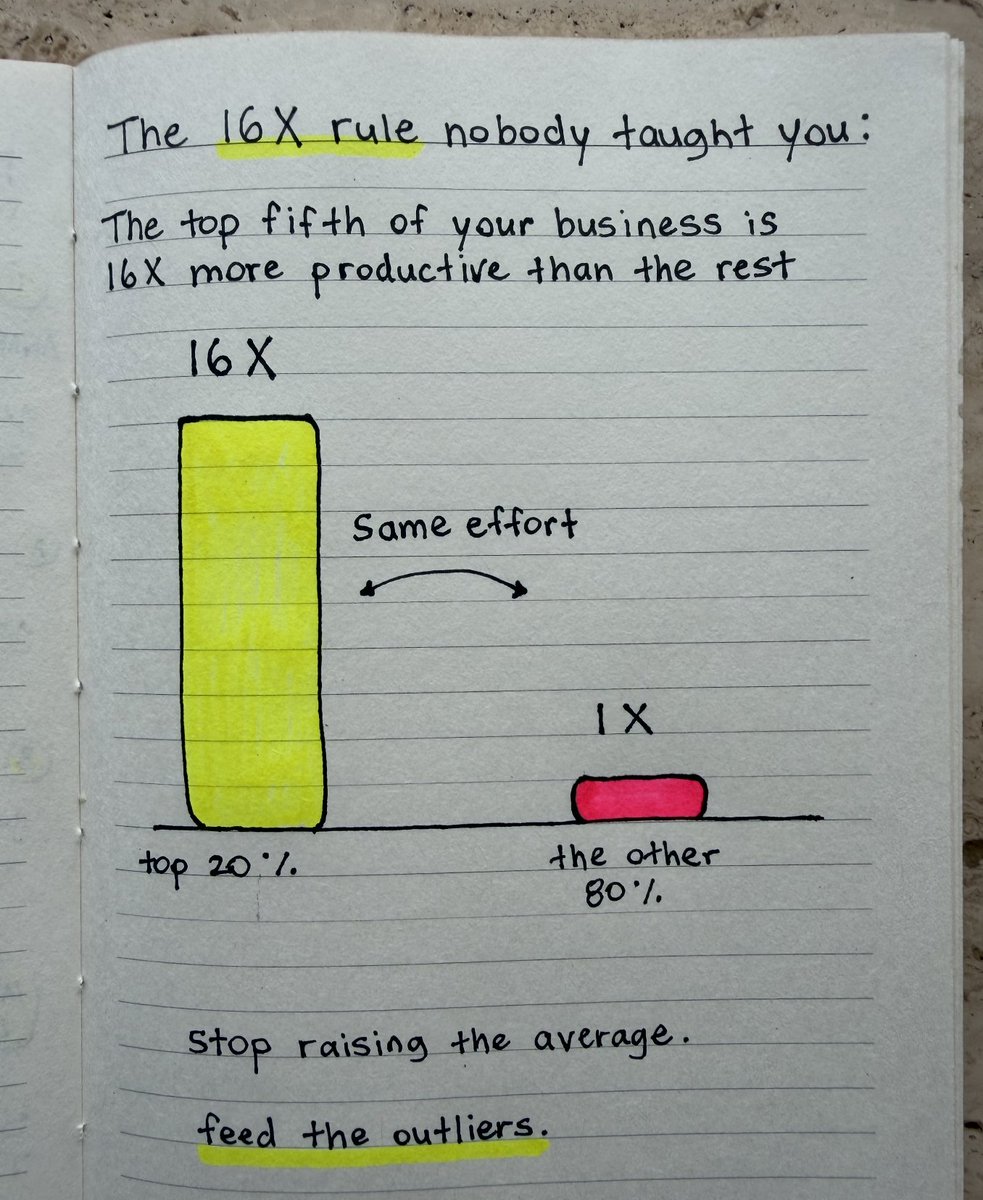 The 16X rule nobody taught you:
The top fifth of your business is
16X more productive than the rest
16X
Same effort
1X
top 20%
the other
80%
Stop raising the average.
feed the outliers.